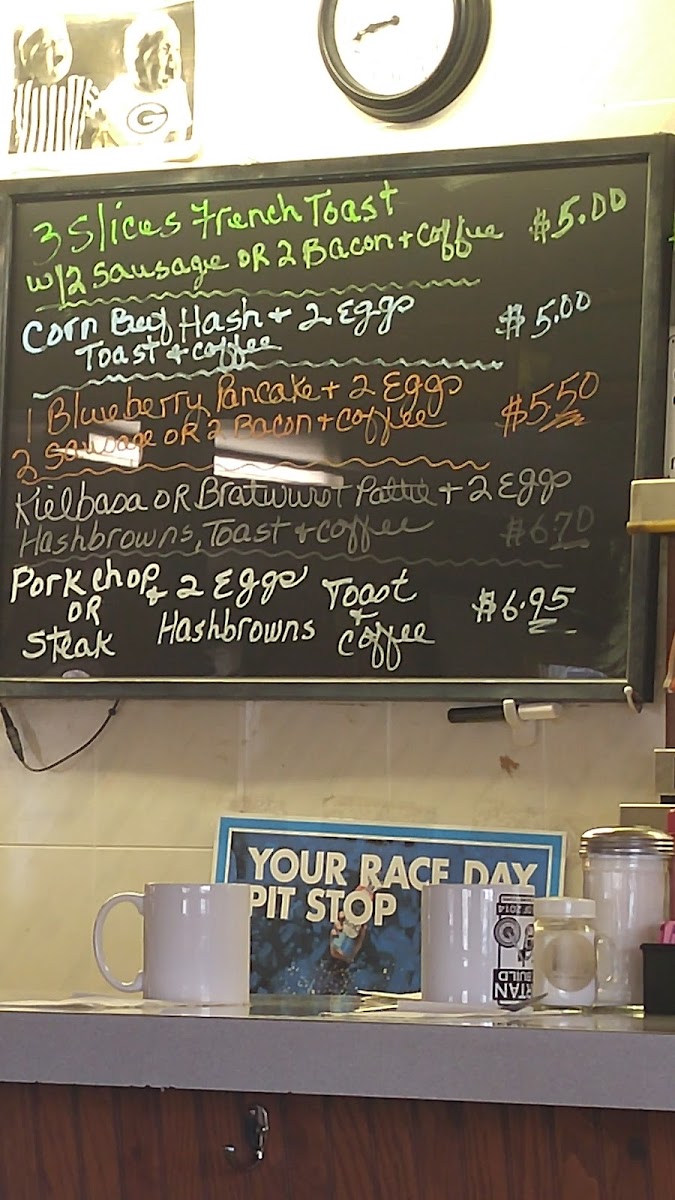 G
3 Slices French Toast
w/2 Sausage OR 2 Bacon + Coffee $5.00
Corn Beef Hash + 2 Eggs $5.00
Toast + coffee
1 Blueberry Pancake + 2 Eggs
2 Sausage OR 2 Bacon + coffee $5.50
Kielbasa OR Bratwurst Pattie + 2 Eggs
Hashbrowns, Toast + coffee $6.70
Pork chop + 2 Eggs Toast
OR + $6.95
Steak Hashbrowns coffee
YOUR RACE DAY
PIT STOP
OF 2014
RTAN
BUILD